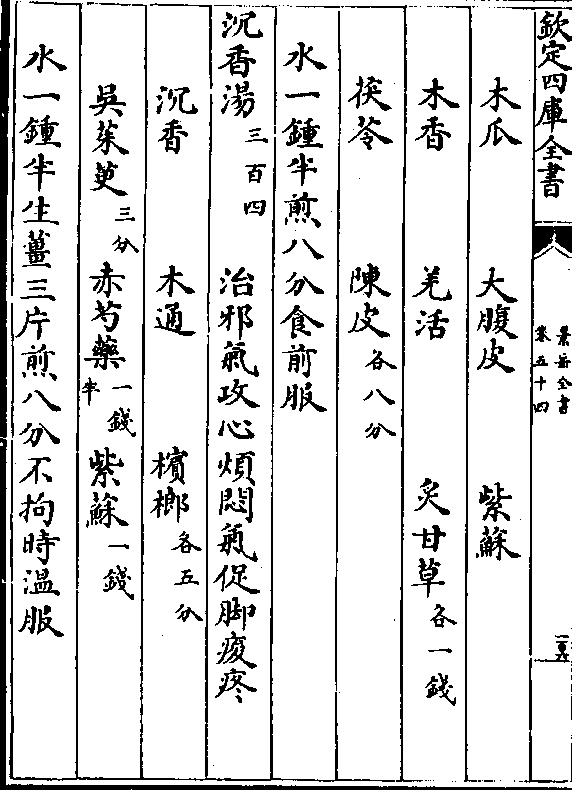 欽定四庫全書
景岳全書
卷五十四
木瓜 大腹皮 紫蘇
木香 羌活 炙甘草各一錢
茯苓 陳皮各八分
水一鍾半煎八分食前服
沉香湯三百四 治邪氣攻心煩悶氣促脚痠疼
沉香 木通 檳榔各五分
吳茱萸三分 赤芍藥一錢半 紫蘇一錢
水一鍾半生薑三片煎八分不拘時溫服